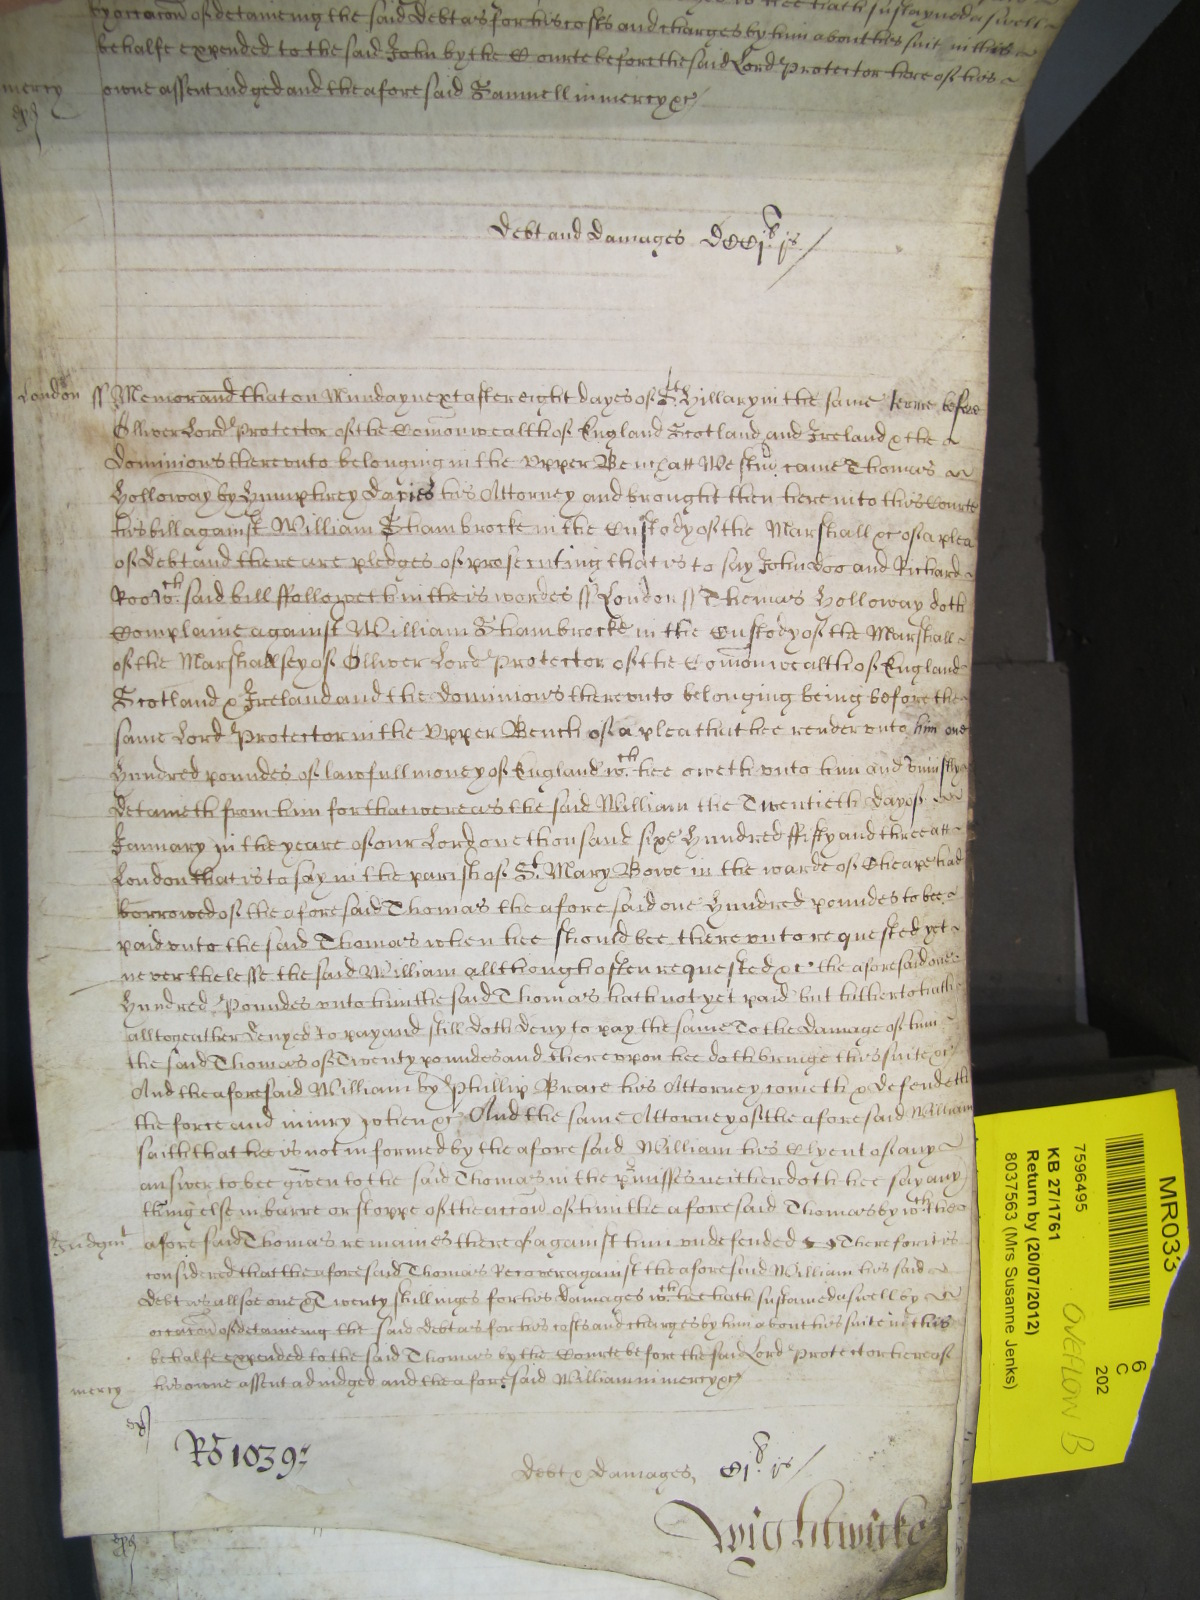 by occacon of detaineing the said Debt as for his costs and charges by him about his suit in this
behalfe expended to the said John by the Courte before the said Lord Protector here of his
mercy owne assent iudged and the aforesaid Samuell in mercy &c
Debt and Damages DCCjli. js
London ss Memorand that on Munday next after eight dayes of St. Hillary in the same terme before
Olliver Lord Protector of the Comonwealth of England Scotland and Ireland & the
dominions thereunto belonging in the Upper Bench att Westmr. came Thomas
Holloway by Humphrey Davies his Attorney and brought then here into this Courte
his bill against William Shambrocke in the Custody of the Marshall &c of a plea
of debt and there are pledges of prosecuting that is to say John Doo and Richard
Roo wch. said bill followeth in theis wordes ss London ss Thomas Holloway doth
Complaine against William Shambrocke in the Custody of the Marshall
of the Marshallsey of Olliver Lord Protector of the Comonwealth of England
Scotland & Ireland and the dominions thereunto belonging being before the
same Lord Protector in the Upper Bench of a plea that hee render unto him one
Hundred poundes of lawfull money of England wch. hee oweth unto him and uniustly
detaineth from him for that whereas the said William the Twentieth day of
January in the yeare of our Lord one thousand sixe Hundred fifty and three att
London that is to say in the parish of St. Mary Bowe in the warde of Cheape had
borrowed of the aforesaid Thomas the aforesaid one Hundred poundes to bee
paid unto the said Thomas when hee should bee thereunto requested yet
neverthelesse the said William allthough often requested &c the aforesaid one
Hundred Poundes unto him the said Thomas hath not yet paid but hitherto hath
alltogeather denyed to pay and still doth deny to pay the same To the damage of him
the said Thomas of Twenty poundes and thereupon hee doth bringe this suite &c
And the aforesaid William by Phillip Brace his Attorney cometh & defendeth
the force and iniury when &c And the same Attorney of the aforesaid William
saith that hee is not informed by the aforesaid William his Clyent of any
answer to bee given to the said Thomas in the pmisses neither doth hee say any
thing else in barre or stoppe of the accon of him the aforesaid Thomas by wch the
Judgmt aforesaid Thomas remaines thereof against him undefended Therefore it is
considered that the aforesaid Thomas Recover against the aforesaid William his said
debt as allsoe one & Twenty shillinges for his damages wch. hee hath sustained aswell by
occacon of detaineing the said debt as for his costs and charges by him about his suite in this
behalfe expended to the said Thomas by the Courte before the said Lord Protector here of
mercy his owne assent adiudged and the aforesaid William in mercy &c
Ro 1039
Debt & Damages, Cjli. js
Wightwicke
MR033
7596495
KB 27/1761
Return by (20/07/2012)
8037563 (Mrs Susanne Jenks)
6
C
202
OVEFLOW B